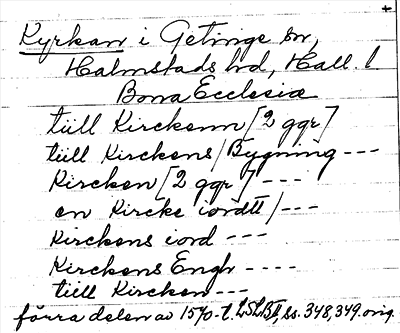 Kyrkan i Getinge sn,
Halmstads hd, Hall. l
Bona Ecclesiæ
till Kirckenn [2 ggr]
till Kirckens/Bygning ---
Kircken [2 ggr] ---
en Kircke iordtt/---
Kirckens iord ---
Kirckens Engh ----
till Kircken ---
förra delen av 1570-t. ss. 348, 349. orig.